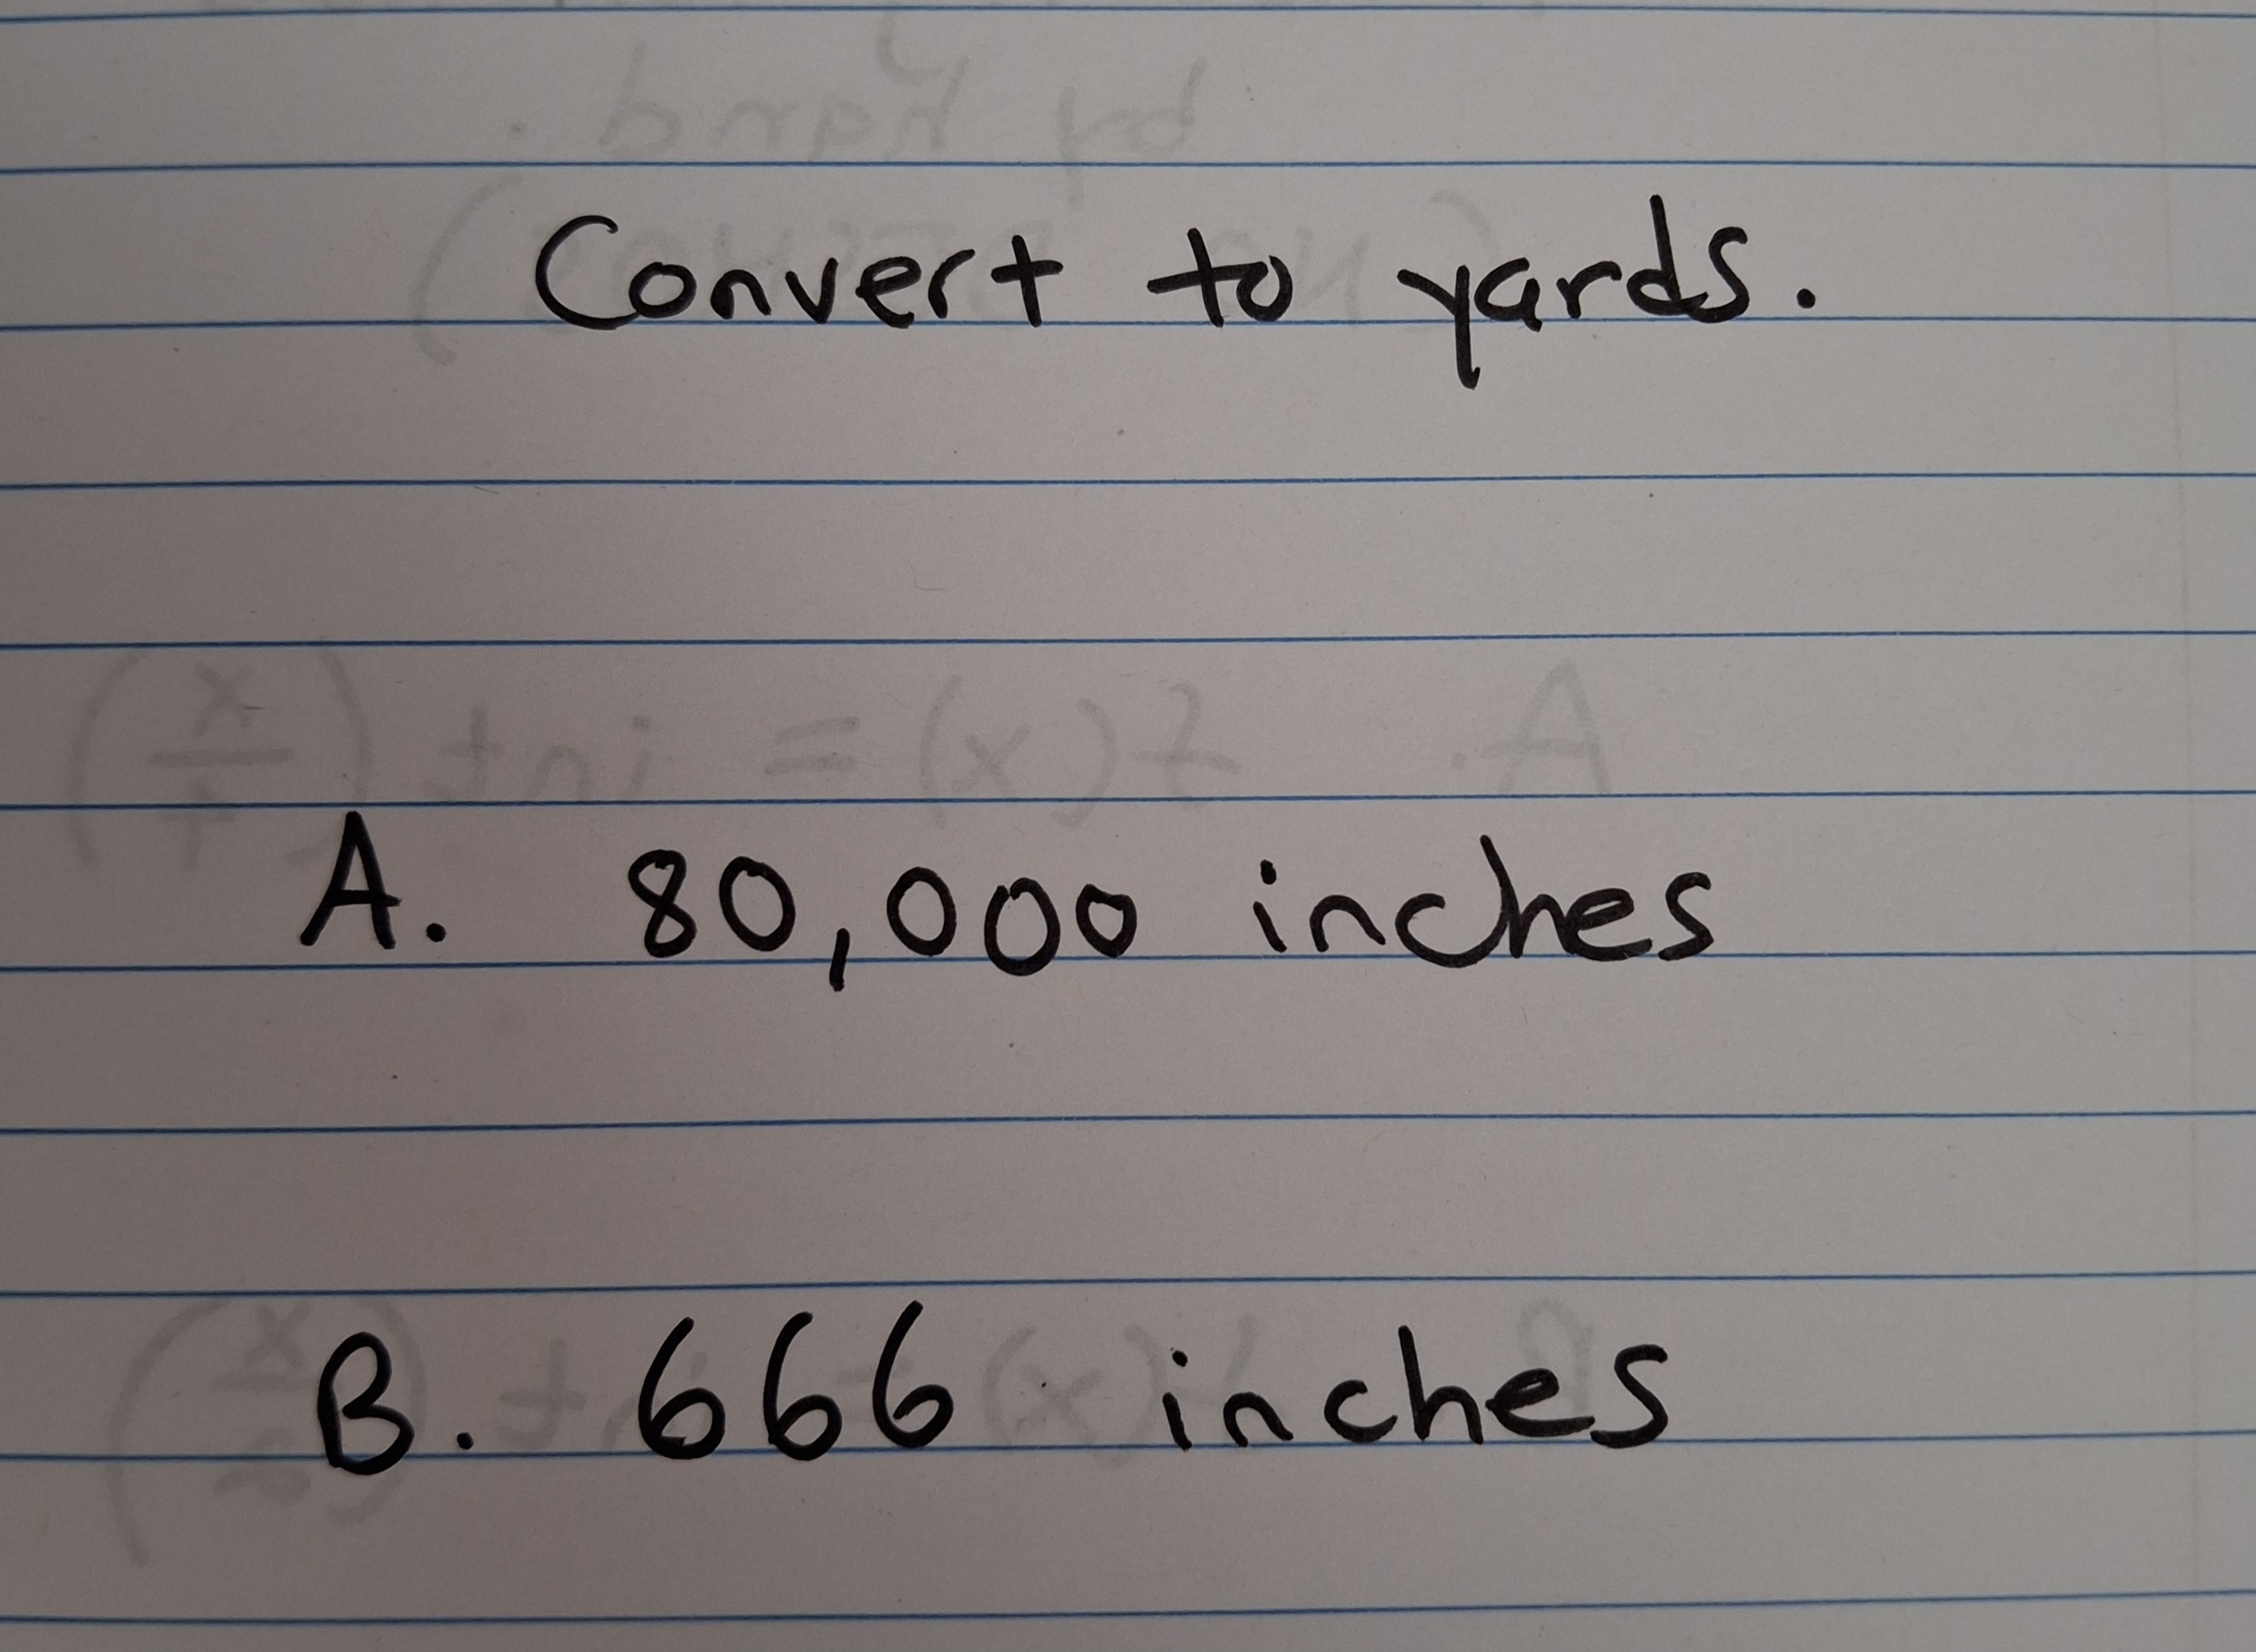 Convert to yards.
A. 80,000 inches
B. 666 inches